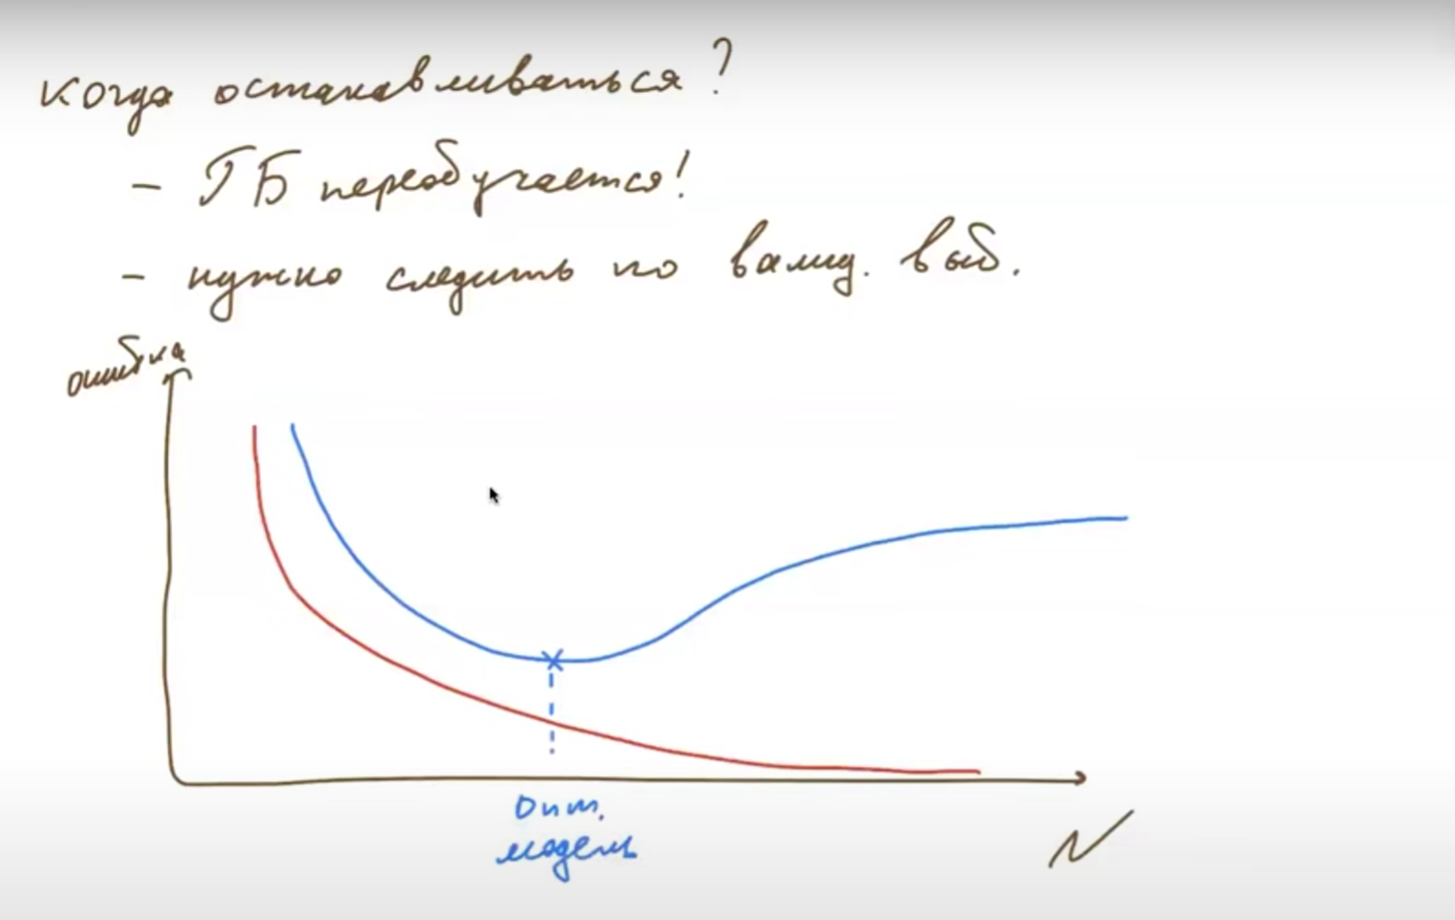 когда останавливаться?
- ГБ переобучается!
- нужно следить по валид. выб.
ошибка
Опт.
модель
N